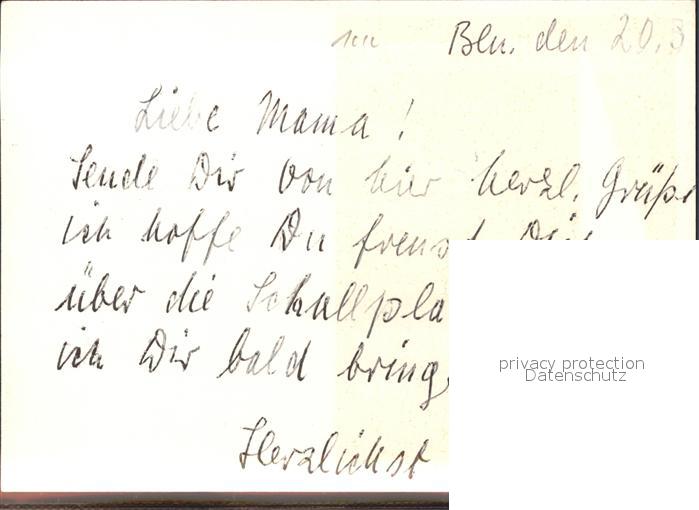 Bln. den 20.3
Liebe Mama!
Sende Dir von hier herzl. Grüße
ich hoffe Du freust Dich
über die Schallpla
ich Dir bald bring,
Herzlichst
privacy protection
Datenschutz